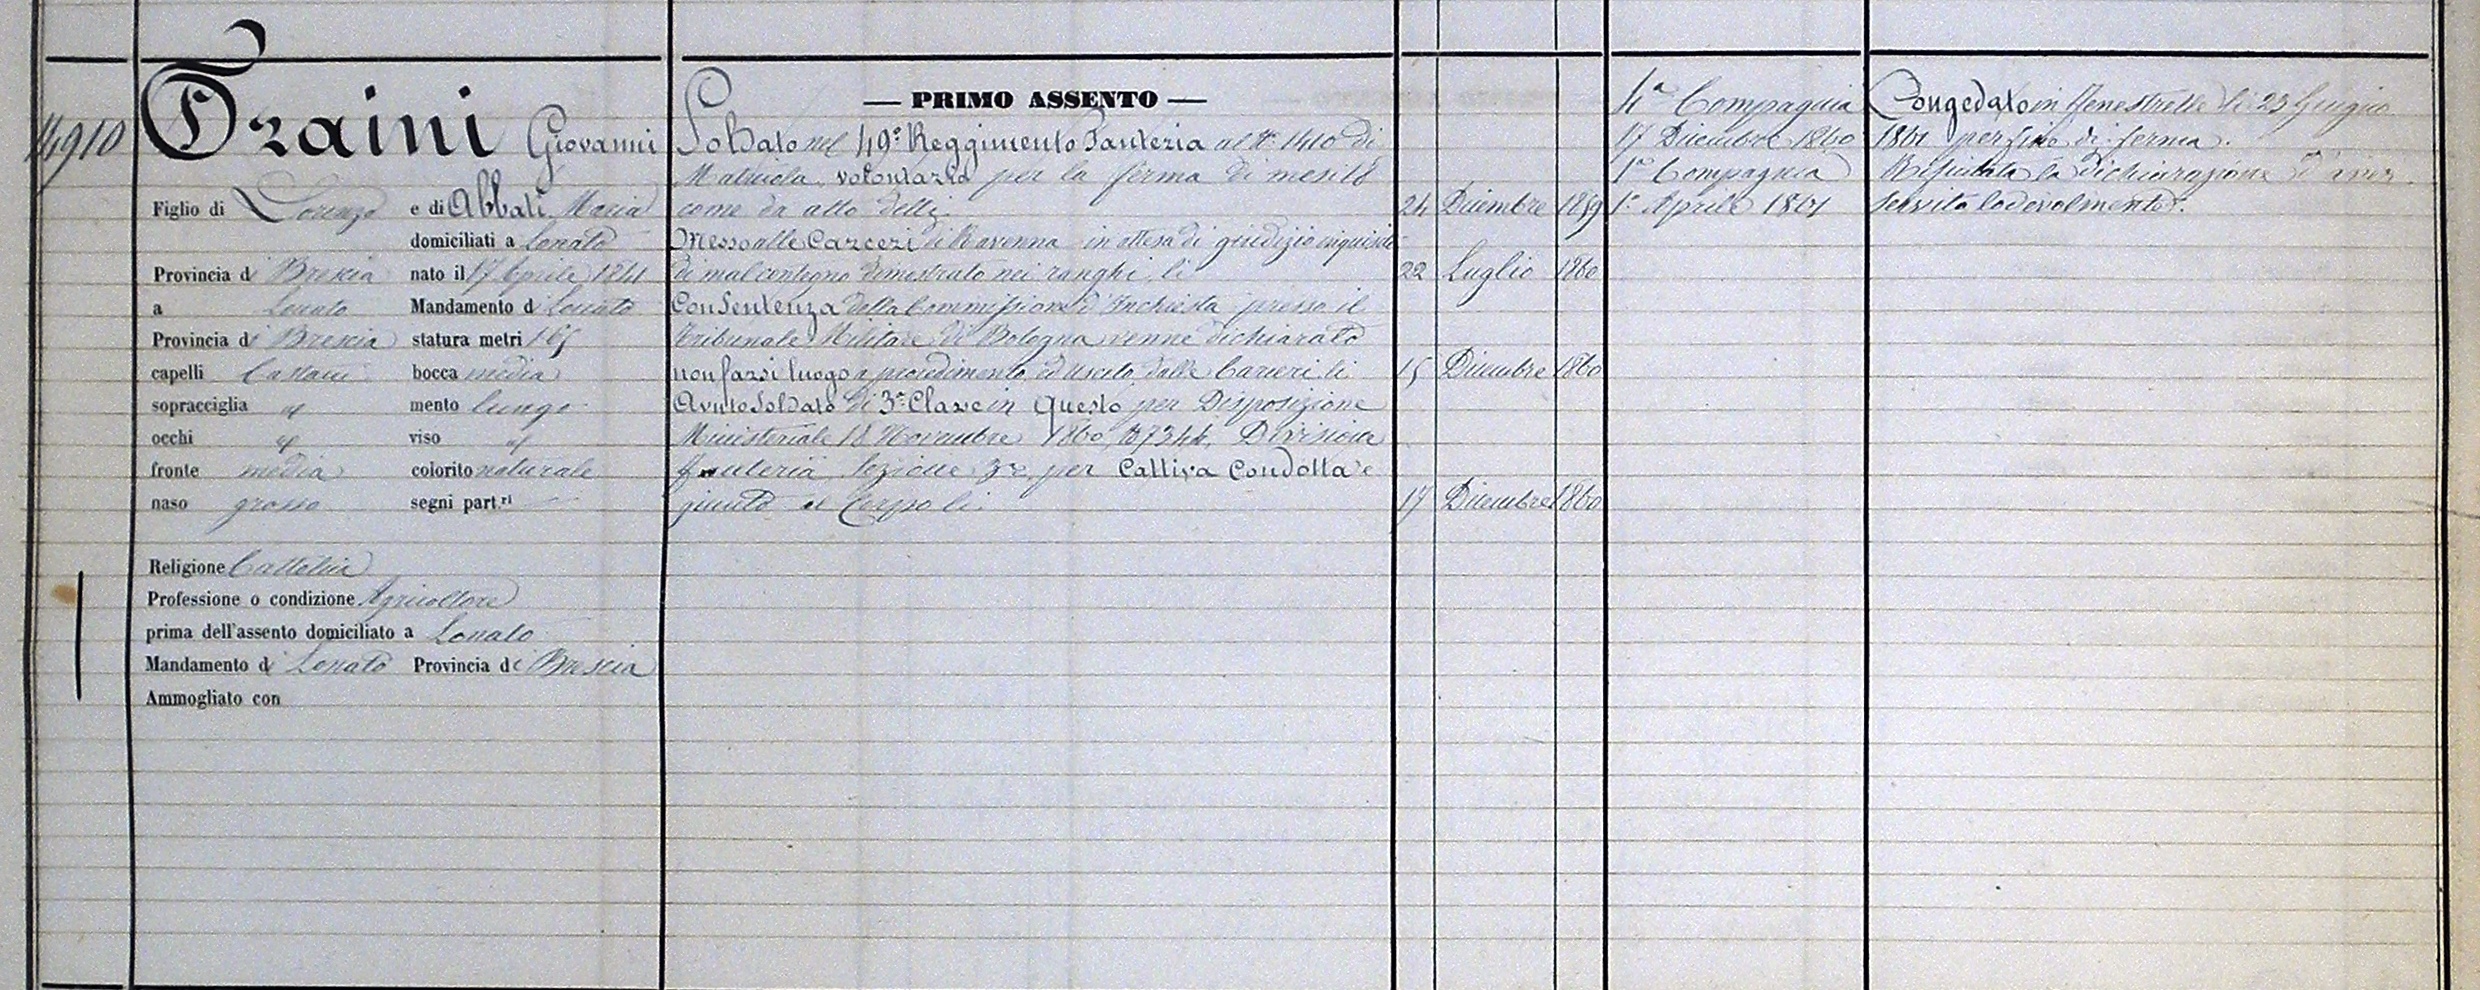 14910
Traini Giovanni
Figlio di Lorenzo e di Abbati Maria
domiciliati a Lonato
Provincia di Brescia nato il 17 Aprile 1841
a Lonato Mandamento di Lonato
Provincia di Brescia statura metri 1.65
capelli Castani bocca media
sopracciglia id mento lungo
occhi id viso id
fronte media colorito naturale
naso grosso segni part.ri —
Religione Cattolica
Professione o condizione Agricoltore
prima dell'assento domiciliato a Lonato
Mandamento di Lonato Provincia di Brescia
Ammogliato con
— PRIMO ASSENTO —
Soldato nel 49º Reggimento Fanteria al Nº 1410 di
Matricola, volontario per la ferma di mesi 18
come da atto delli 24 Dicembre 1859
Messo alle Carceri di Ravenna in attesa di giudizio inquisito
di mal contegno dimostrato nei ranghi li 22 Luglio 1860
Con Sentenza della Commissione d'Inchiesta presso il
Tribunale Militare di Bologna venne dichiarato
non farsi luogo a procedimento, ed uscito dalle Carceri li 15 Dicembre 1860
Avuto Soldato di 3ª Classe in Questo per Disposizione
Ministeriale 18 Novembre 1860, Nº 7344, Divisione
fanteria Sezione 3ª per Cattiva Condotta e
giunto al Corpo li 17 Dicembre 1860
4ª Compagnia
17 Dicembre 1860
1ª Compagnia
1º Aprile 1861
Congedato in Fenestrelle li 23 Giugno
1861 per fine di ferma.
Rifiutata la dichiarazione d'aver
servito lodevolmente.